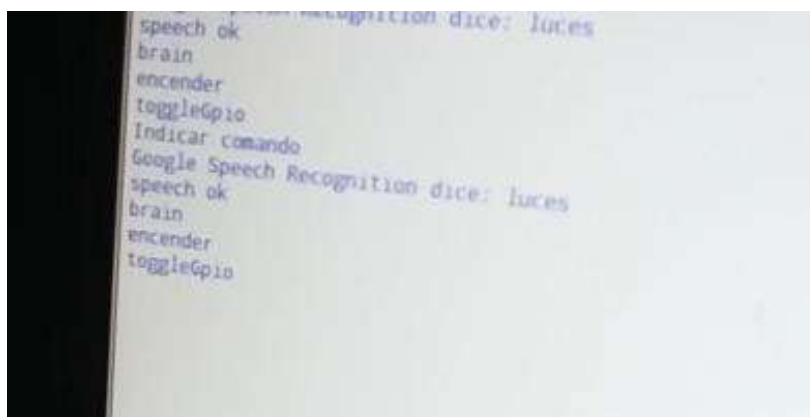 Speech Recognition dice: luces
speech ok
brain
encender
toggleGpio
Indicar comando
Google Speech Recognition dice: luces
speech ok
brain
encender
toggleGpio